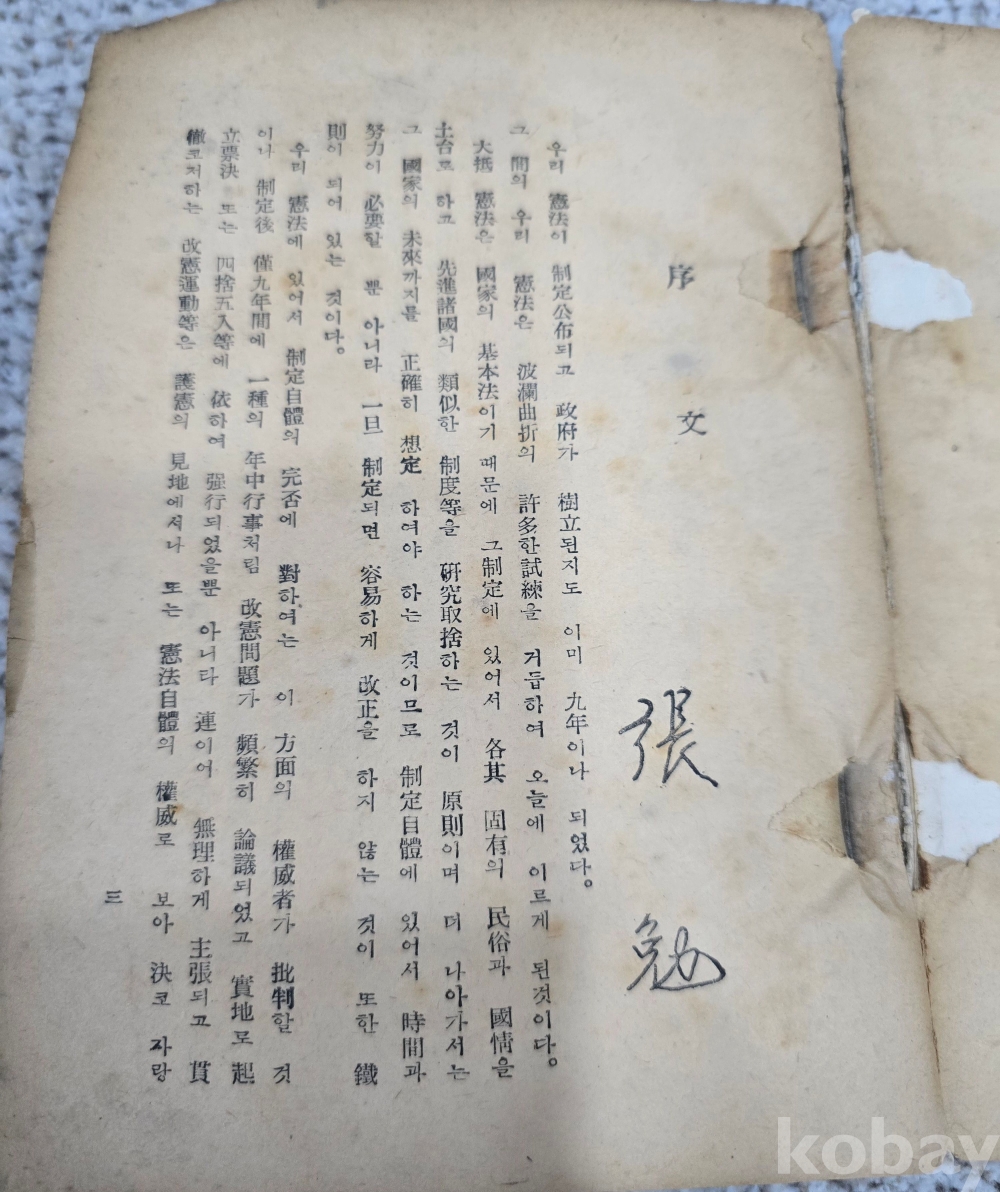 序文
張勉
우리 憲法이 制定公布되고 政府가 樹立된지도 이미 九年이나 되었다。
그 間의 우리 憲法은 波瀾曲折의 許多한試練을 거듭하여 오늘에 이르게 된것이다。
大抵 憲法은 國家의 基本法이기 때문에 그制定에 있어서 各其 固有의 民俗과 國情을
土台로 하고 先進諸國의 類似한 制度等을 硏究取捨하는 것이 原則이며 더 나아가서는
그 國家의 未來까지를 正確히 想定 하여야 하는 것이므로 制定自體에 있어서 時間과
努力이 必要할 뿐 아니라 一旦 制定되면 容易하게 改正을 하지 않는 것이 또한 鐵
則이 되어 있는 것이다。
우리 憲法에 있어서 制定自體의 完否에 對하여는 이 方面의 權威者가 批判할 것
이나 制定後 僅九年間에 一種의 年中行事처럼 改憲問題가 頻繁히 論議되었고 實地로 起
立票決 또는 四捨五入等에 依하여 強行되었을뿐 아니타 連이어 無理하게 主張되고 貫
徹코저하는 改憲運動等은 護憲의 見地에서나 또는 憲法自體의 權威로 보아 決코 자랑
三
kobay